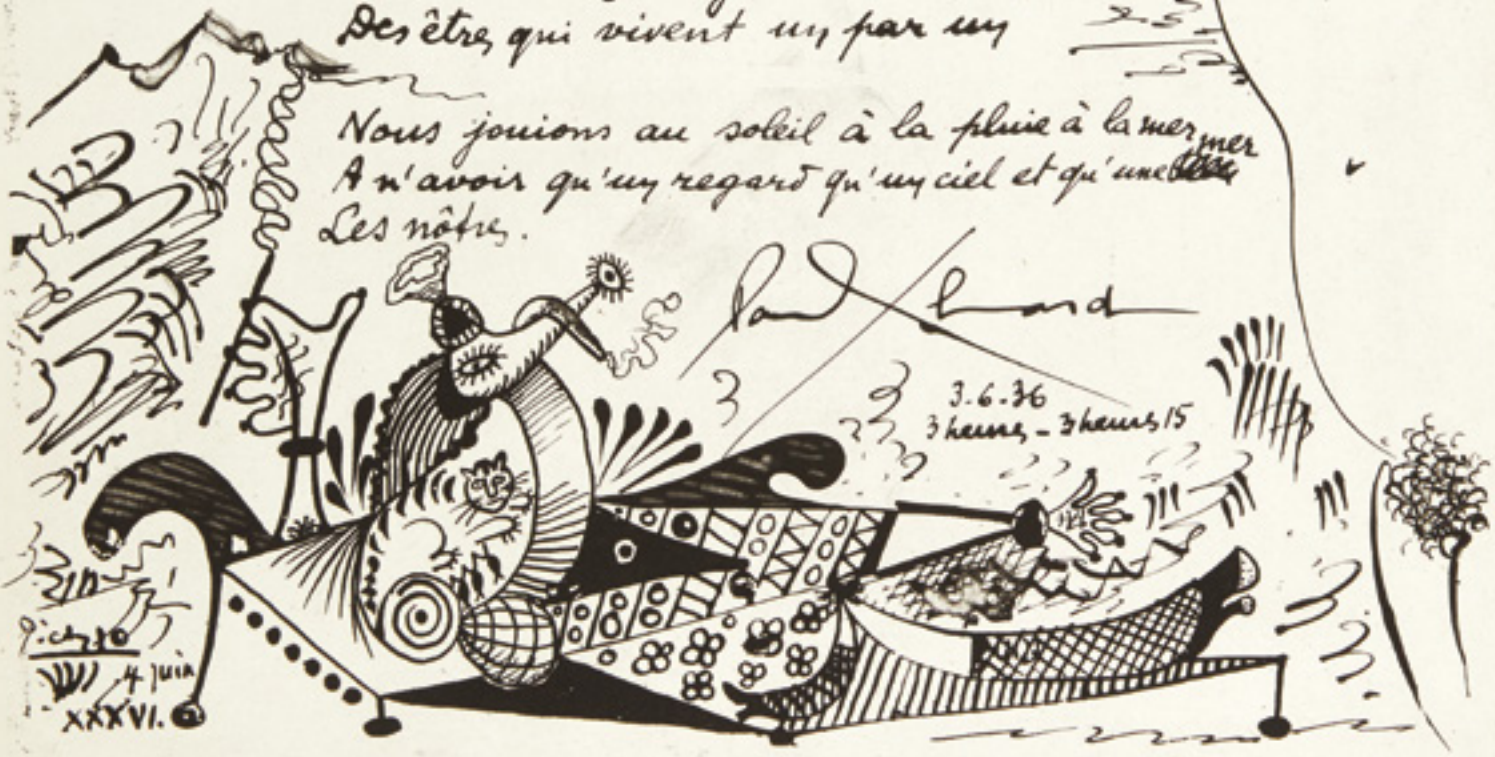 Des êtres qui vivent un par un
Nous jouions au soleil à la pluie à la mer
A n'avoir qu'un regard qu'un ciel et qu'une mer
Les nôtres.
Paul Eluard
3.6.36
3 heures - 3 heures 15
Picasso
4 juin
XXXVI.